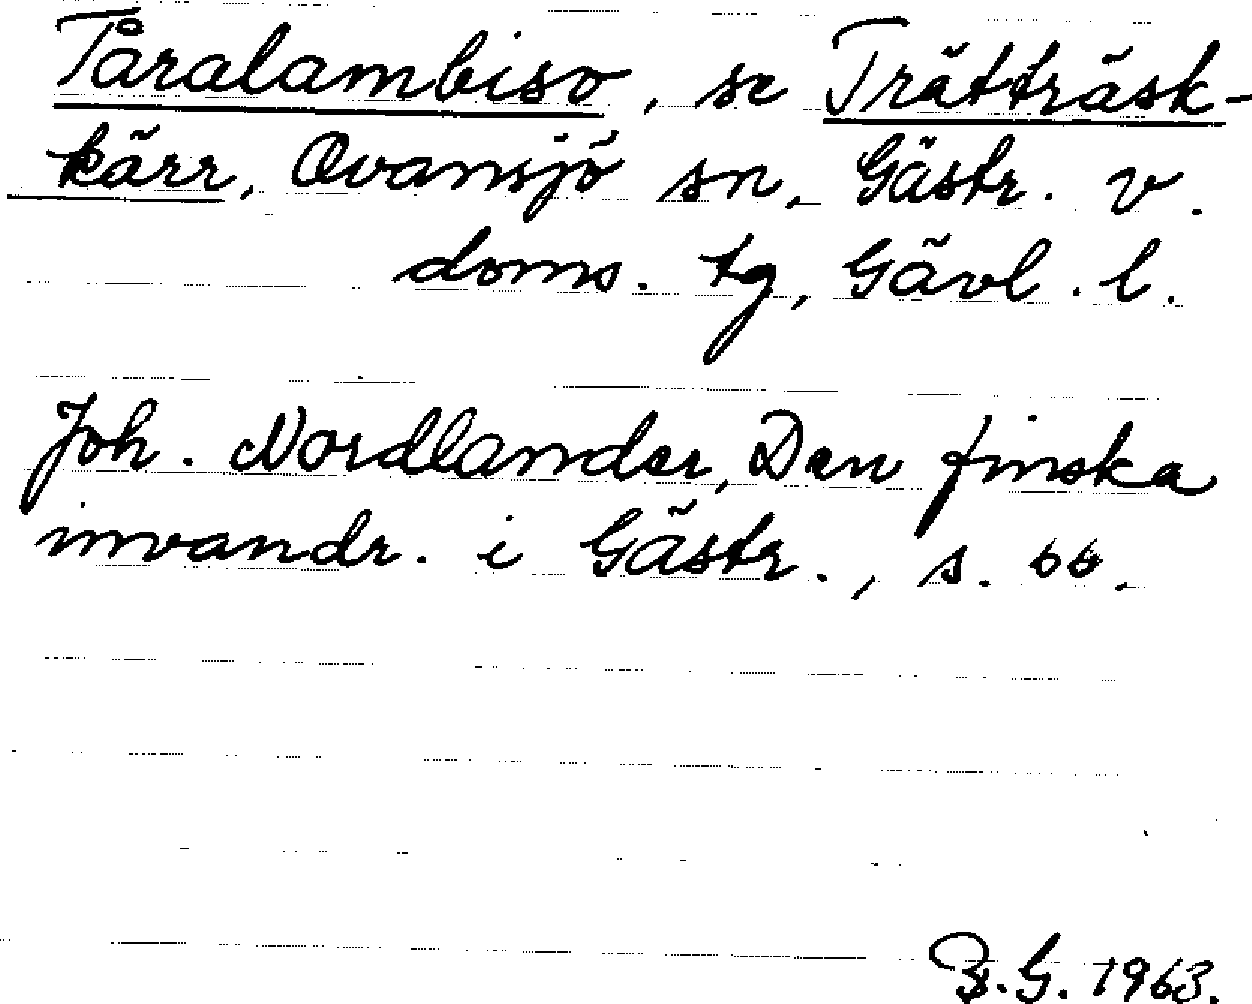 Tåralambiso, se Trätträsk-
kärr, Ovansjö sn, Gästr. v.
doms. tg, Gävl. l.
Joh. Nordlander, Den finska
invandr. i Gästr., s. 66.
B.G. 1963.